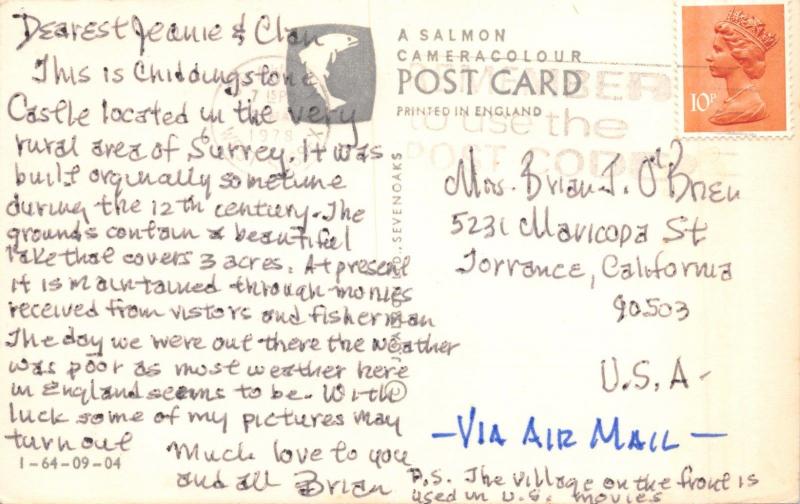 Dearest Jeanie & Clan
This is Chiddingstone
Castle located in the very
rural area of Surrey. It was
built orginally sometime
during the 12th century. The
grounds contain a beautiful
lake that covers 3 acres. At present
it is maintained through monies
received from vistors and fisherman
The day we were out there the weather
was poor as most weather here
in England seems to be. With
luck some of my pictures may
turn out
Much love to you
and all Brian
1-64-09-04
A SALMON
CAMERACOLOUR
POST CARD
PRINTED IN ENGLAND
SEVENOAKS
©
1978
to use the
POST CODE
10P
Mrs. Brian J. O'Brien
5231 Maricopa St
Torrance, California
90503
U.S.A.
-VIA AIR MAIL-
P.S. The village on the front is
used in U.S. movies